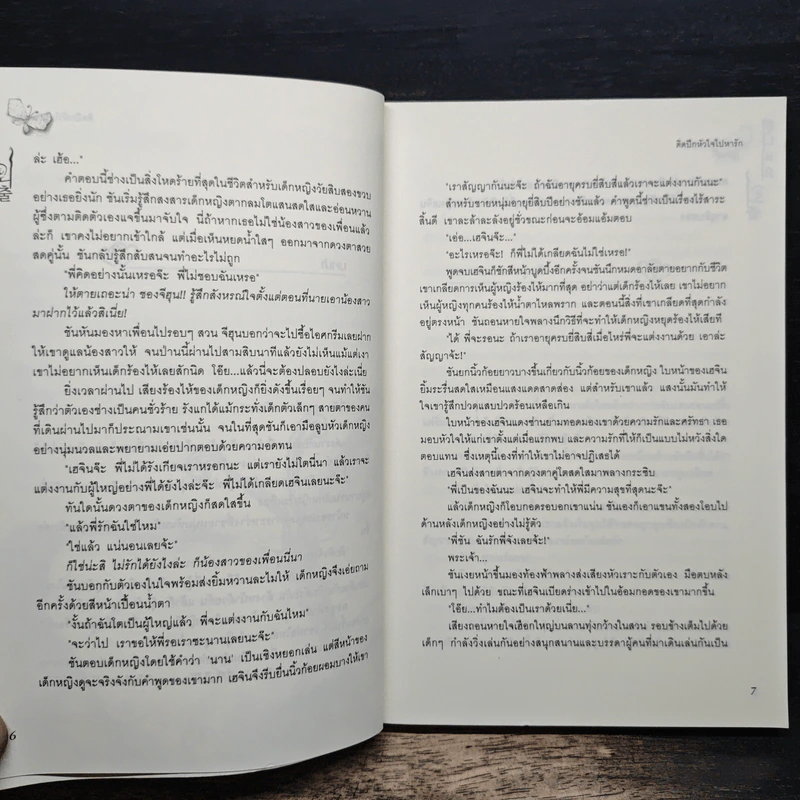 ล่ะ เฮ้อ..."
คำตอบนี้ช่างเป็นสิ่งโหดร้ายที่สุดในชีวิตสำหรับเด็กหญิงวัยสิบสองขวบ
อย่างเธอยิ่งนัก ชันเริ่มรู้สึกสงสารเด็กหญิงตากลมโตแสนสดใสและอ่อนหวาน
ผู้ซึ่งตามติดตัวเองแจขึ้นมาจับใจ นี่ถ้าหากเธอไม่ใช่น้องสาวของเพื่อนแล้ว
ล่ะก็ เขาคงไม่อยากเข้าใกล้ แต่เมื่อเห็นหยดน้ำใสๆ ออกมาจากดวงตาสวย
สดคู่นั้น ชันกลับรู้สึกสับสนจนทำอะไรไม่ถูก
"พี่คิดอย่างนั้นเหรอจ๊ะ พี่ไม่ชอบฉันเหรอ"
ให้ตายเถอะน่า ของจีฮุน!! รู้สึกสังหรณ์ใจตั้งแต่ตอนที่นายเอาน้องสาว
มาฝากไว้แล้วสิเนี่ย!
ชันหันมองหาเพื่อนไปรอบๆ สวน จีฮุนบอกว่าจะไปซื้อไอศกรีมเลยฝาก
ให้เขาดูแลน้องสาวให้ จนป่านนี้ผ่านไปสามสิบนาทีแล้วยังไม่เห็นแม้แต่เงา
เขาไม่อยากเห็นเด็กร้องไห้เลยสักนิด โอ๊ย...แล้วนี่จะต้องปลอบยังไงล่ะเนี่ย
ยิ่งเวลาผ่านไป เสียงร้องไห้ของเด็กหญิงก็ยิ่งดังขึ้นเรื่อยๆ จนทำให้ชัน
รู้สึกว่าตัวเองช่างเป็นคนชั่วร้าย รังแกได้แม้กระทั่งเด็กตัวเล็กๆ สายตาของคน
ที่เดินผ่านไปมาก็ประณามเขาเช่นนั้น จนในที่สุดชันก็เอามือลูบหัวเด็กหญิง
อย่างนุ่มนวลและพยายามเอ่ยปากตอบด้วยความอดทน
"เฮจินจ๊ะ พี่ไม่ได้รังเกียจเราหรอกนะ แต่เรายังไม่โตนี่นา แล้วเราจะ
แต่งงานกับผู้ใหญ่อย่างพี่ได้ยังไงล่ะจ๊ะ พี่ไม่ได้เกลียดเฮจินเลยนะจ๊ะ"
ทันใดนั้นดวงตาของเด็กหญิงก็สดใสขึ้น
"แล้วพี่รักฉันใช่ไหม"
"ใช่แล้ว แน่นอนเลยจ้ะ"
ก็ใช่น่ะสิ ไม่รักได้ยังไงล่ะ ก็น้องสาวของเพื่อนนี่นา
ชันบอกกับตัวเองในใจพร้อมส่งยิ้มหวานละไมให้ เด็กหญิงจึงเอ่ยถาม
อีกครั้งด้วยสีหน้าเปื้อนน้ำตา
"งั้นถ้าฉันโตเป็นผู้ใหญ่แล้ว พี่จะแต่งงานกับฉันไหม"
"จะว่าไป เราขอให้พี่รอเราซะนานเลยนะจ๊ะ"
ชันตอบเด็กหญิงโดยใช้คำว่า 'นาน' เป็นเชิงหยอกเล่น แต่สีหน้าของ
เด็กหญิงดูจะจริงจังกับคำพูดของเขามาก เฮจินจึงรีบยื่นนิ้วก้อยผอมบางให้เขา
6
ติดปีกหัวใจไปหารัก
"เราสัญญากันนะจ๊ะ ถ้าฉันอายุครบยี่สิบสี่แล้วเราจะแต่งงานกันนะ"
สำหรับชายหนุ่มอายุยี่สิบสี่ปีอย่างชันแล้ว คำพูดนี้ช่างเป็นเรื่องไร้สาระ
สิ้นดี เขาละล้าละลังอยู่ชั่วขณะก่อนจะอ้อมแอ้มตอบ
"เอ่อ...เฮจินจ๊ะ..."
"อะไรเหรอจ๊ะ ก็พี่ไม่ได้เกลียดฉันไม่ใช่เหรอ!"
พูดจบเฮจินก็ชักสีหน้าบูดบึ้งอีกครั้งจนชันนึกหมดอาลัยตายอยากกับชีวิต
เขาเกลียดการเห็นผู้หญิงร้องไห้มากที่สุด อย่าว่าแต่เด็กร้องไห้เลย เขาไม่อยาก
เห็นผู้หญิงทุกคนร้องไห้น้ำตาไหลพราก และตอนนี้สิ่งที่เขาเกลียดที่สุดกำลัง
อยู่ตรงหน้า ชันถอนหายใจพลางนึกวิธีที่จะทำให้เด็กหญิงหยุดร้องไห้เสียที
"ได้ พี่จะรอนะ ถ้าเราอายุครบยี่สิบสี่เมื่อไหร่พี่จะแต่งงานด้วย เอาล่ะ
สัญญาจ้ะ!"
ชันยกนิ้วก้อยยาวบางขึ้นเกี่ยวกับนิ้วก้อยของเด็กหญิง ใบหน้าของเฮจิน
ยิ้มระรื่นสดใสเหมือนแสงแดดสาดส่อง แต่สำหรับเขาแล้ว แสงนั้นมันทำให้
ใจเขารู้สึกปวดแสบปวดร้อนเหลือเกิน
ใบหน้าของเฮจินแดงซ่านยามทอดมองเขาด้วยความรักและศรัทธา เธอ
มอบหัวใจให้แก่เขาตั้งแต่เมื่อแรกพบ และความรักที่ให้ก็เป็นแบบไม่หวังสิ่งใด
ตอบแทน ซึ่งเหตุนี้เองที่ทำให้เขาไม่อาจปฏิเสธได้
เฮจินส่งสายตาจากดวงตาคู่โตสดใสมาพลางกระซิบ
"พี่เป็นของฉันนะ เฮจินจะทำให้พี่มีความสุขที่สุดนะจ๊ะ"
แล้วเด็กหญิงก็โอบกอดรอบอกเขาแน่น ชันเองก็เอาแขนทั้งสองโอบไป
ด้านหลังเด็กหญิงอย่างไม่รู้ตัว
"พี่ชัน ฉันรักพี่จังเลยจ้ะ!"
พระเจ้า...
ชันเงยหน้าขึ้นมองท้องฟ้าพลางส่งเสียงหัวเราะกับตัวเอง มือตบหลัง
เล็กเบาๆ ไปด้วย ขณะที่เฮจินเบียดร่างเข้าไปในอ้อมกอดของเขามากขึ้น
"โอ๊ย...ทำไมต้องเป็นเราด้วยเนี่ย..."
เสียงถอนหายใจเฮือกใหญ่บนลานทุ่งกว้างในสวน รอบข้างเต็มไปด้วย
เด็กๆ กำลังวิ่งเล่นกันอย่างสนุกสนานและบรรดาผู้คนที่มาเดินเล่นกันเป็น
7